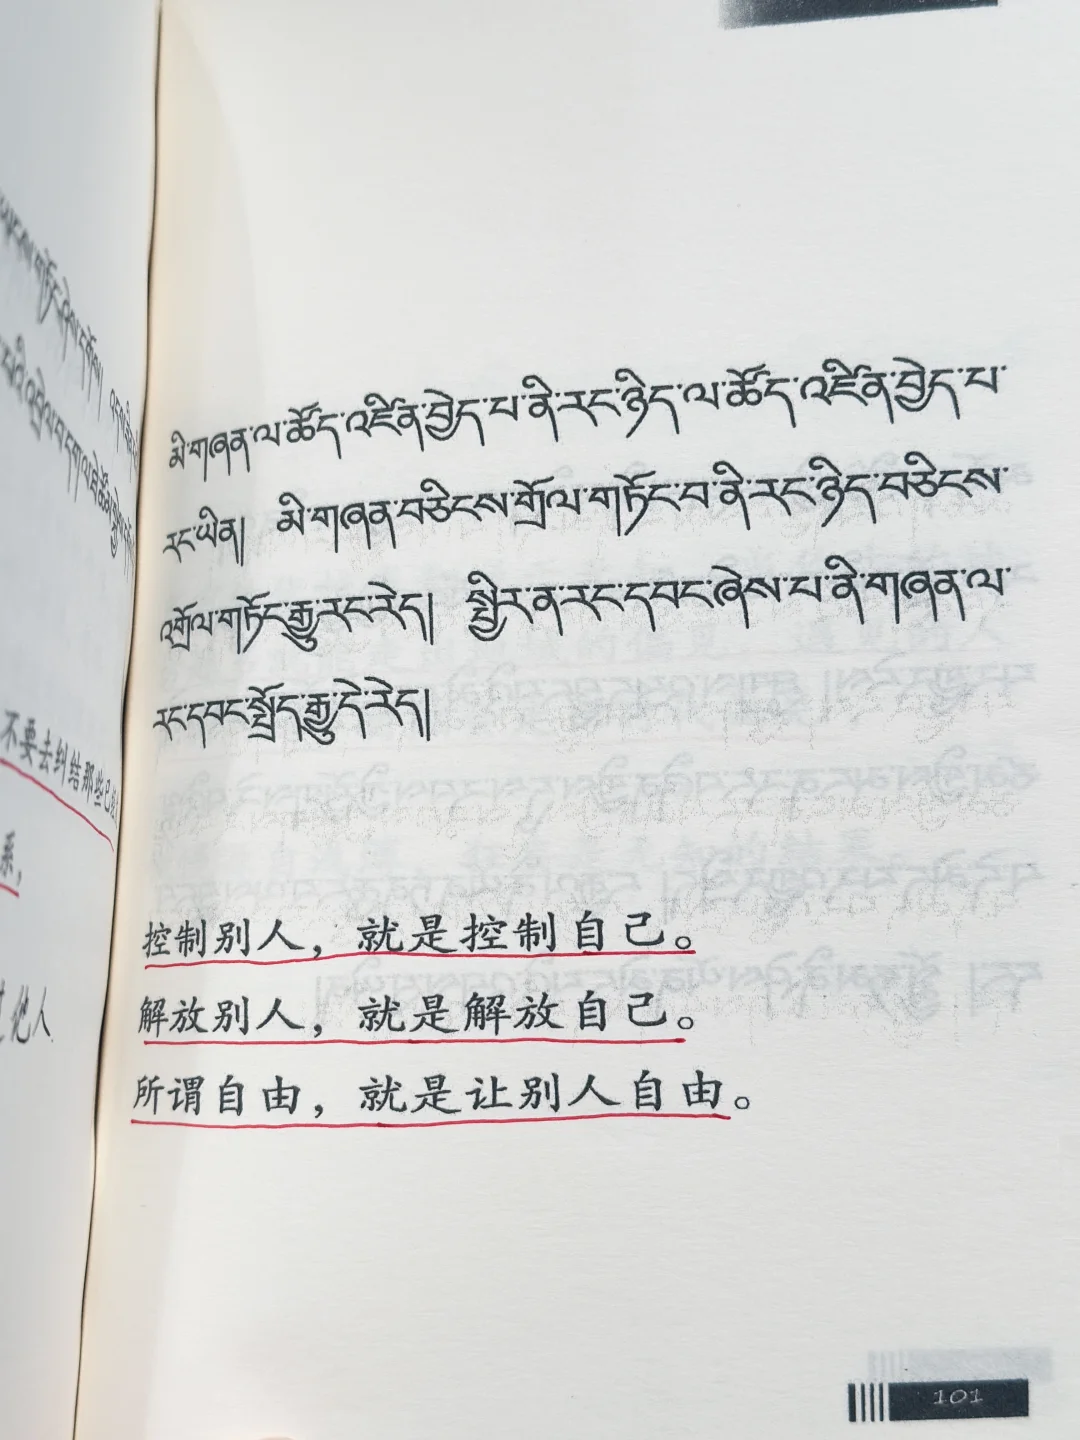 མི་གཞན་ལ་ཚོད་འཛིན་བྱེད་པ་ནི་རང་ཉིད་ལ་ཚོད་འཛིན་བྱེད་པ་
རང་ཡིན། མི་གཞན་བཅིངས་གྲོལ་གཏོང་བ་ནི་རང་ཉིད་བཅིངས་
འགྲོལ་གཏོང་རྒྱུ་རང་རེད། སྤྱིར་ན་རང་དབང་ཞེས་པ་ནི་གཞན་ལ་
རང་དབང་སྤྲོད་རྒྱུ་དེ་རེད།
不要去纠结那些已
系，
他人
控制别人，就是控制自己。
解放别人，就是解放自己。
所谓自由，就是让别人自由。
101